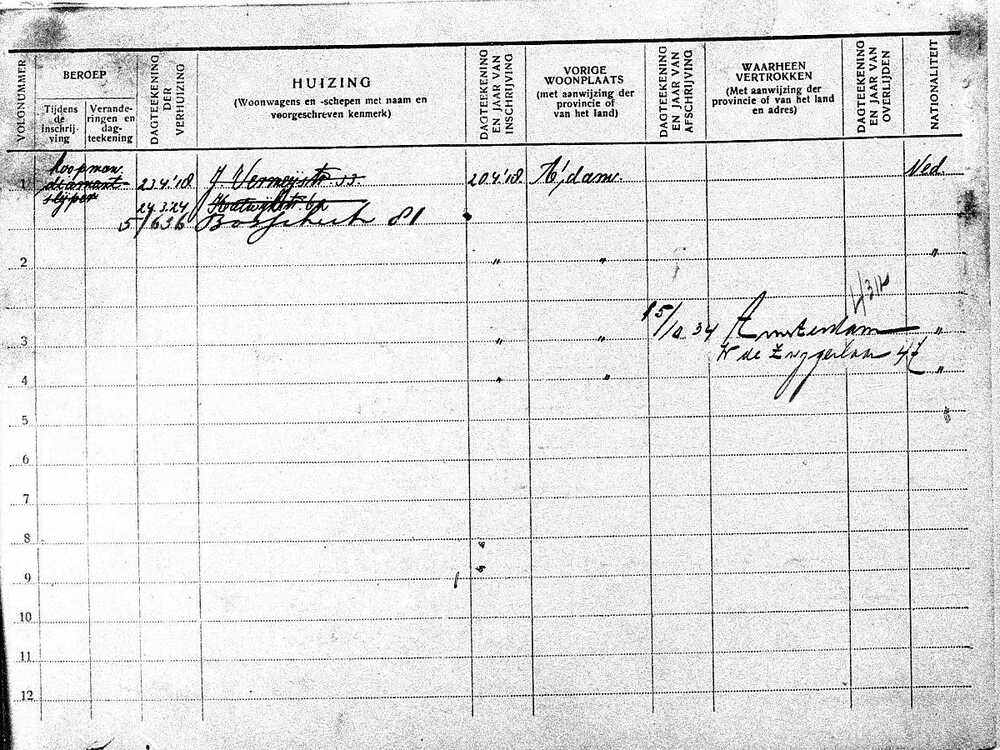 VOLGNUMMER
BEROEP
Tijdens de inschrij-ving
Verande-ringen en dag-teekening
DAGTEEKENING DER VERHUIZING
HUIZING
(Woonwagens en -schepen met naam en
voorgeschreven kenmerk)
DAGTEEKENING EN JAAR VAN INSCHRIJVING
VORIGE
WOONPLAATS
(met aanwijzing der
provincie of
van het land)
DAGTEEKENING EN JAAR VAN AFSCHRIJVING
WAARHEEN
VERTROKKEN
(Met aanwijzing der
provincie of van het land
en adres)
DAGTEEKENING EN JAAR VAN OVERLIJDEN
NATIONALITEIT
koopman
1 diamant 23.4.'18 J. Vermeijstr. 33 20.4.'18 A'dam. Ned.
slijper 24.3.24
5/636 81
2 " " "
15/10 34 Amsterdam
3 " " "
47
4 " " "
5
6
7
8
9
10
11
12